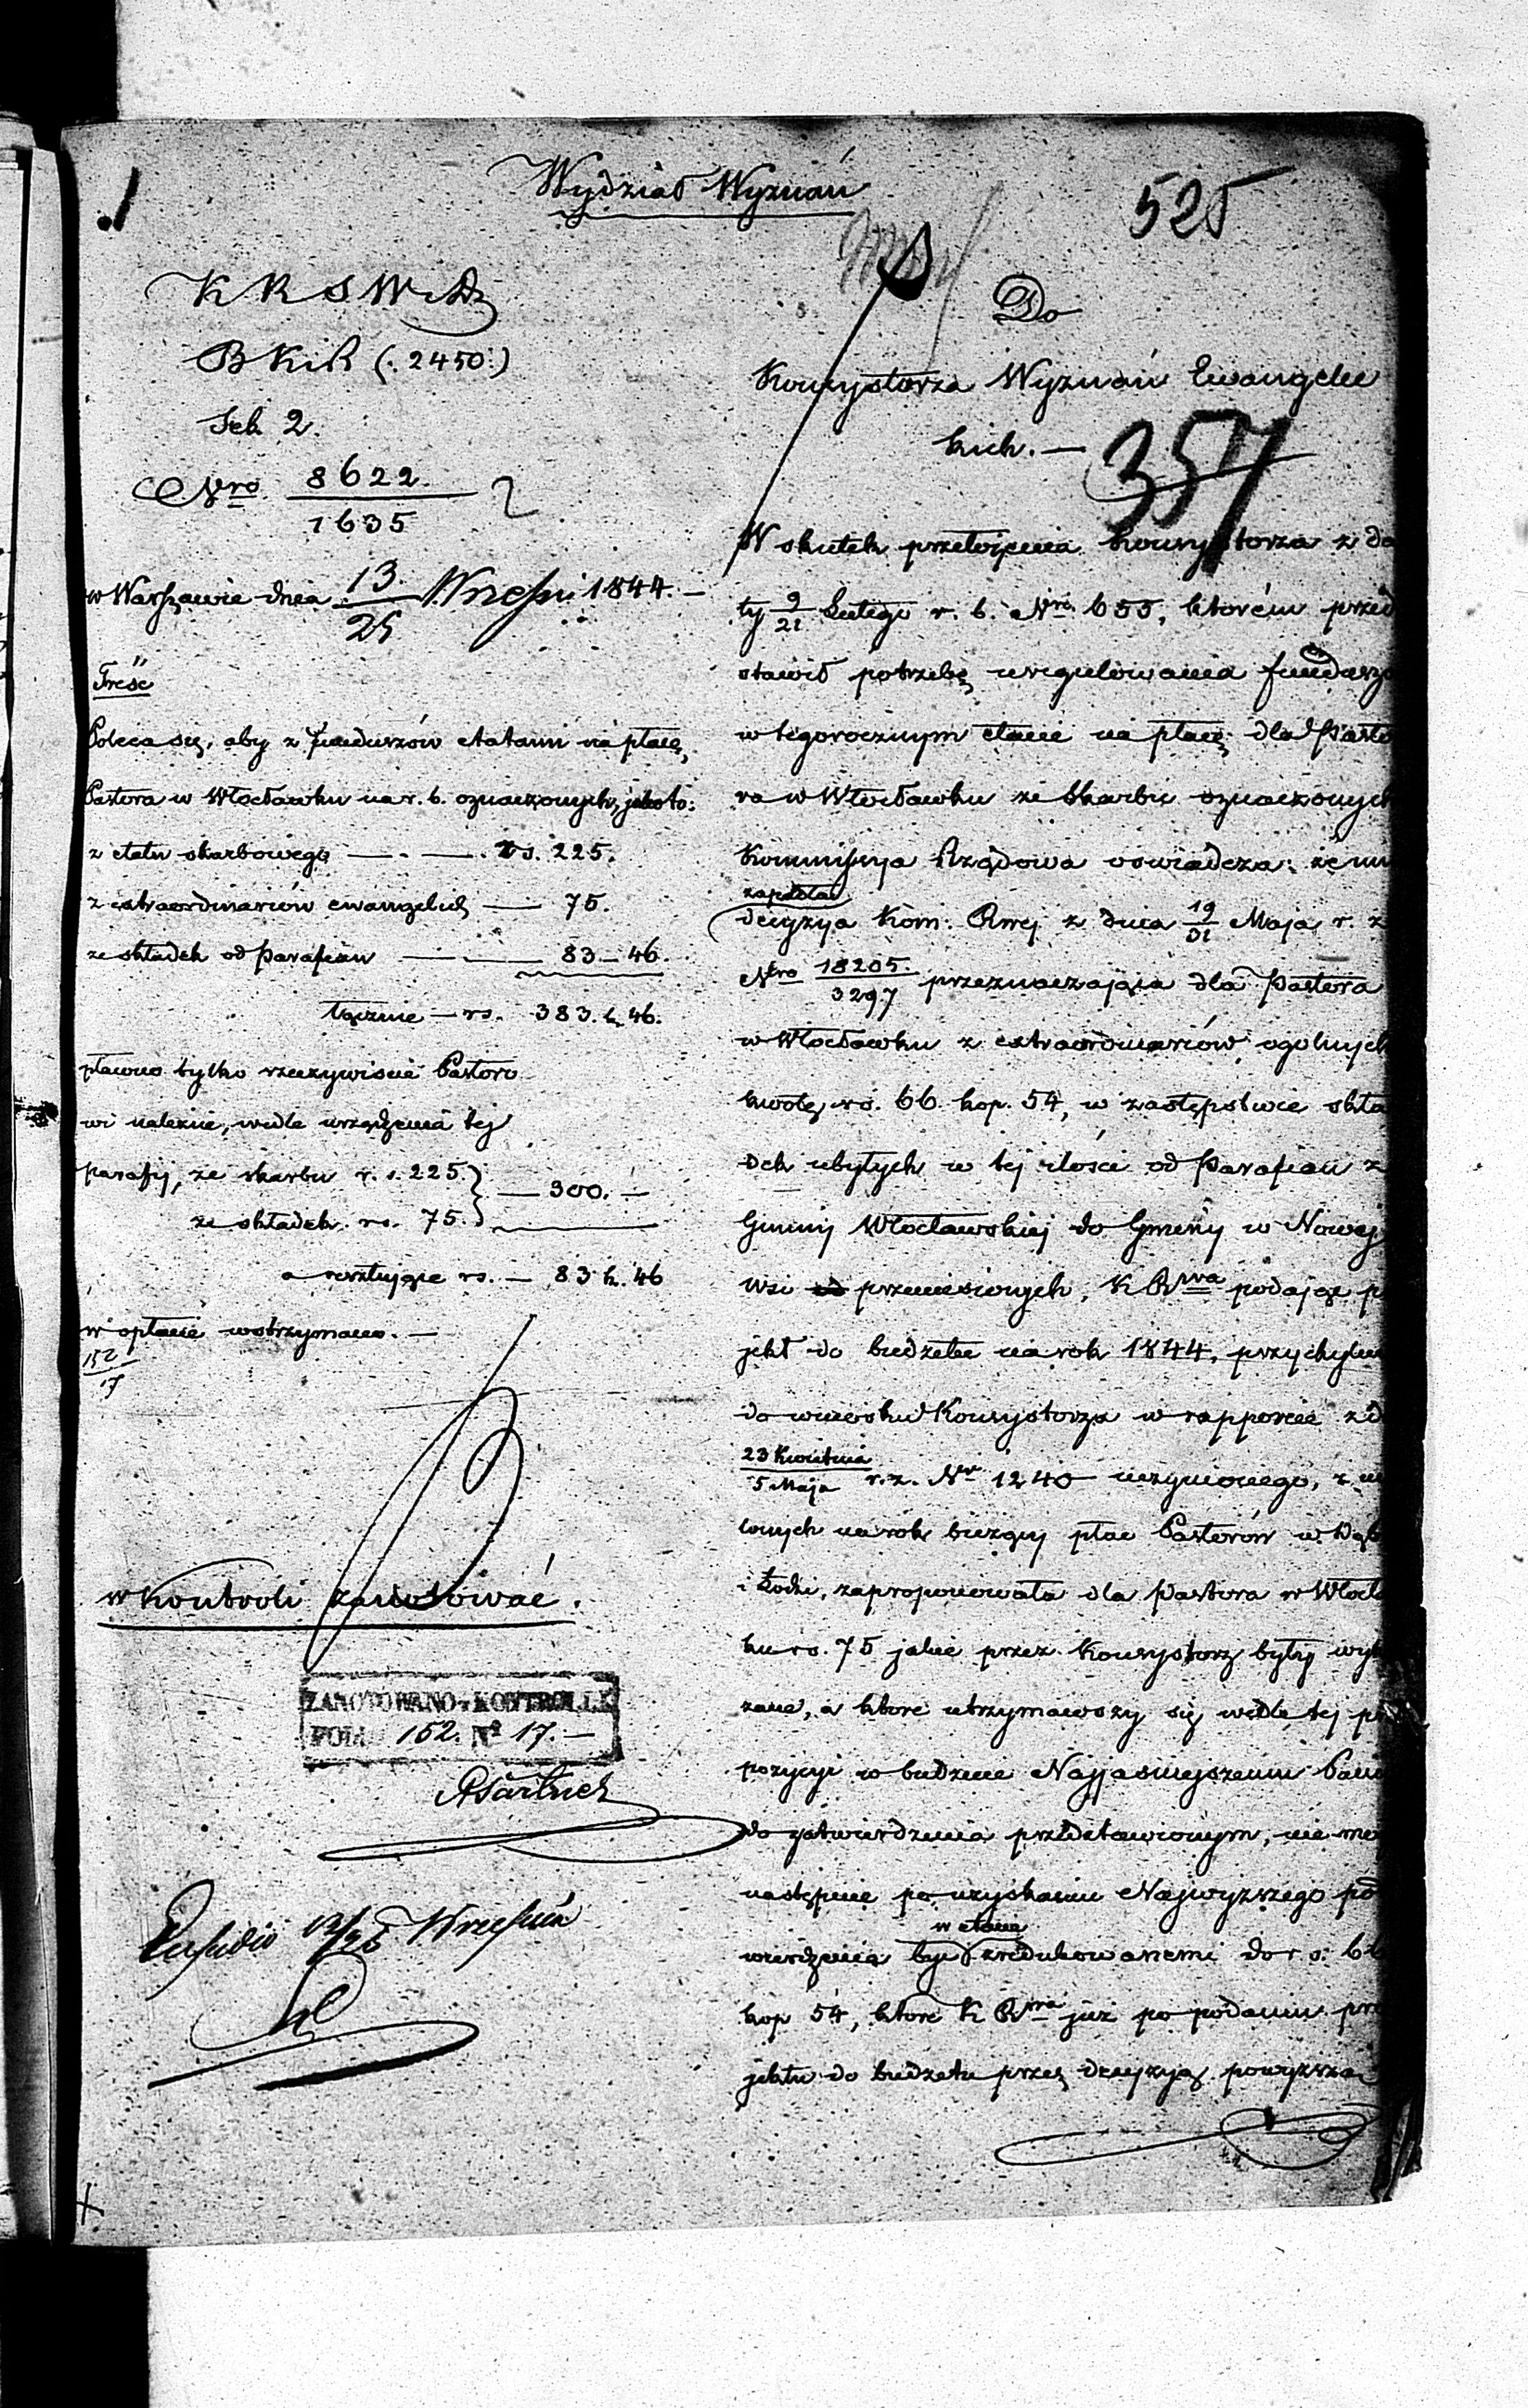 Wydział Wyznań
525
K R S W i D
B K i R (: 2450 :)
Sek 2.
Nro 8622.
1635
w Warszawie dnia 13/25 Wrześn: 1844. —
Treść
Poleca się, aby z funduszów etatami na płacę
Pastora w Włocławku na r. b. oznaczonych, jakoto:
z etatu skarbowego — . — . rs. 225.
z extraordinariów ewangelick — 75.
ze składek od Parafian — — 83 — 46.
łącznie — rs. 383. k. 46.
płacono tylko rzeczywiście Pastoro
wi należne, wedle urządzenia tej
parafij, ze skarbu r. s. 225 } — 300. —
ze składek. rs. 75.
a resztujące rs. — 83 k. 46
w opłacie wstrzymano. —
152
17
w Kontroli zanotować.
ZANOTOWANO w KONTROLLI
FOL. 152. No 17. —
13/25 Września
Do
Konsystorza Wyznań Ewangelic
kich. —
357
W skutek przełożenia Konsystorza z da
ty 9/21 Lutego r. b. Nro 655, którém przed
stawił potrzebę uregulowania funduszó
w tegorocznym etacie na płacę dla Pasto
ra w Włocławku ze Skarbu oznaczonych
Kommissya Rządowa oświadcza: że
zapadła
decyzya Kom: Rwej z dnia 19/31 Maja r. z
Nro 18205./3297 przeznaczająca dla Pastora
w Włocławku z extraordinariów ogolnych
kwotę rs. 66. kop. 54, w zastępstwie skła
dek ubyłych w tej ilości od Parafian z
Gminy Włocławskiej do Gminy w Nowej
wsi przeniesionych, K Rwa podając p
jekt do budżetu na rok 1844, przychylnie
do wniosku Konsystorza w rapporcie z d
23 Kwietnia/5 Maja r. z. Nr 1240 uczynionego, z
lonych na rok bieżący płac Pastorów w Dąb
i Łodzi, zaproponowała dla Pastora w Włocła
ku rs. 75 jakie przez Konsystorz były wyk
zane, a które utrzymawszy się wedle tej pro
pozycyi w budżecie Najjaśniejszemu Panu
do zatwierdzenia przedstawionym, nie mo
następnie po uzyskaniu Najwyższego pot
w etacie
wierdzenia być zredukowanemi do r s: 66
kop 54, które K Rwa już po podaniu pro
jektu do budżetu przez decyzyą powyższą